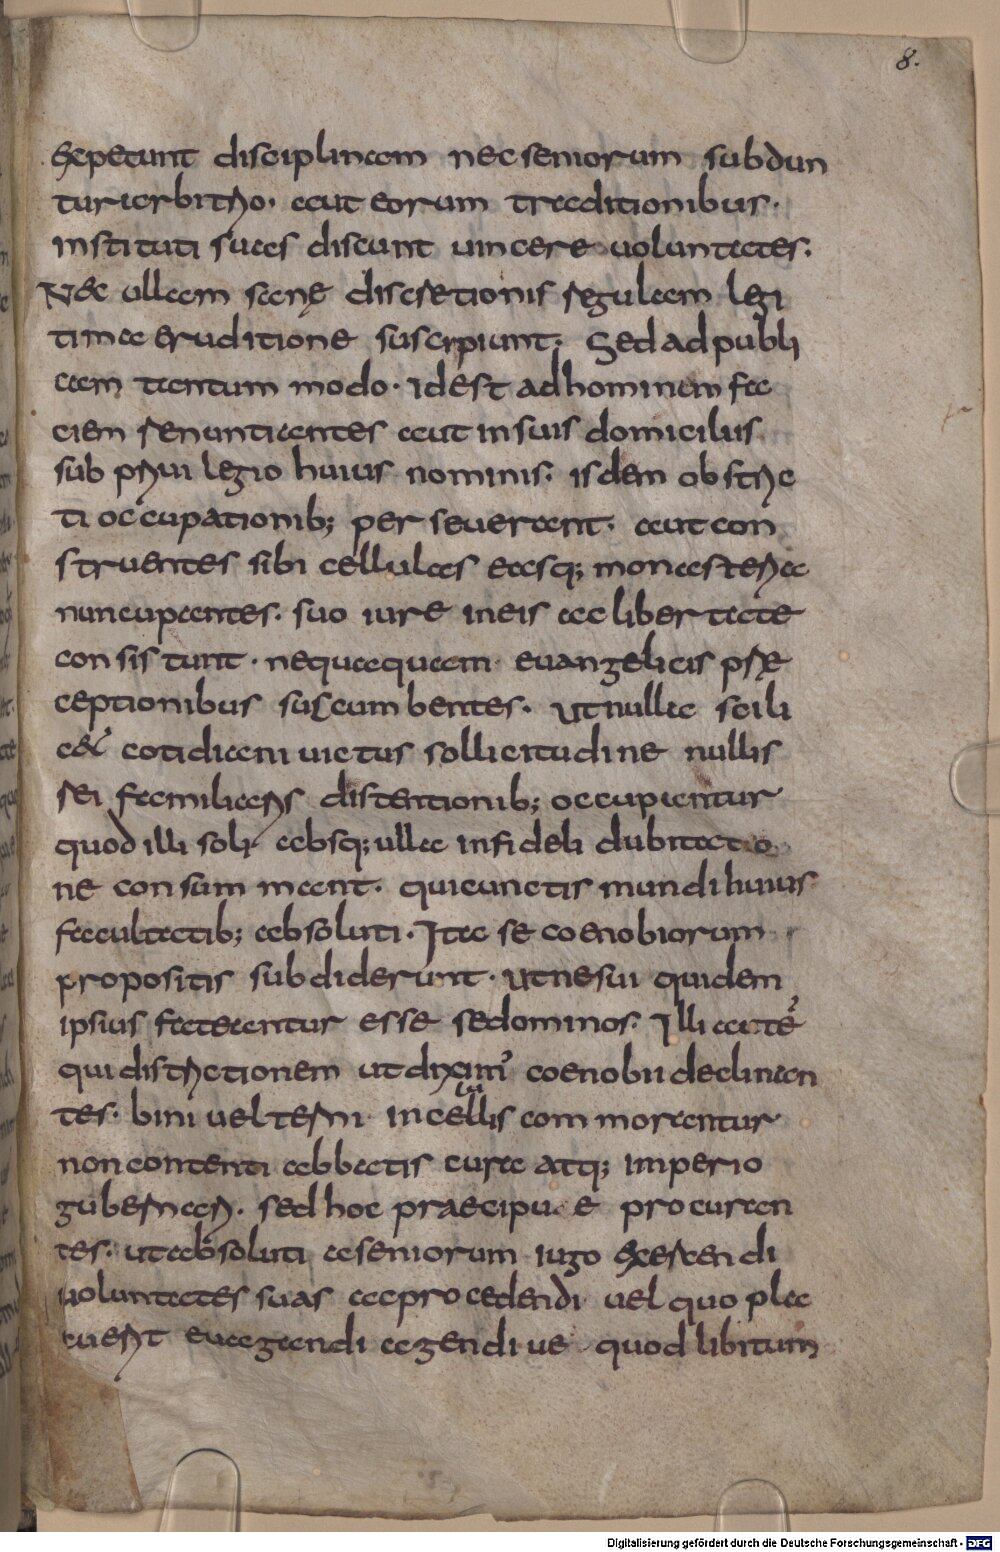 8.
Expetunt disciplinam nec seniorum subdun
tur arbitrio. aut eorum traditionibus.
instituti suas discunt uincere uoluntates.
Nec ullam sanę discretionis regulam legi
tima eruditione suscipiunt. Sed ad publi
cam tantum modo. idest ad hominem fa
ciem renuntiantes aut in suis domiciliis
sub priui legio huius nominis. isdem obstric
ti occupationib; perseuerant. aut con
struentes sibi cellulas easq; monasteria
nuncupantes. suo iure in eis ac libertate
consistunt. nequaquam euangelicis prę
ceptionibus succumbentes. ut nulla scili
c& cotidiani uictus sollicitudine nullis
rei familiaris distentionib; occupentur
quod illi soli absq; ulla infideli dubitatio
ne consummant. qui cunctis mundi huius
facultatib; absoluti. Ita se coenobiorum
propositis subdiderunt. ut ne sui quidem
ipsius fateantur esse se dominos. Illi aute
qui districtionem ut diximus coenobii declinan
tes. bini uel terni in cellulis commorantur
non contenti abbatis cura atq; imperio
gubernari. sed hoc praecipue procuran
tes. ut absoluti a seniorum iugo exercendi
uoluntates suas ac procedendi uel quo pla
cuerit euagandi agendi ue quod libitum
Digitalisierung gefördert durch die Deutsche Forschungsgemeinschaft - DFG